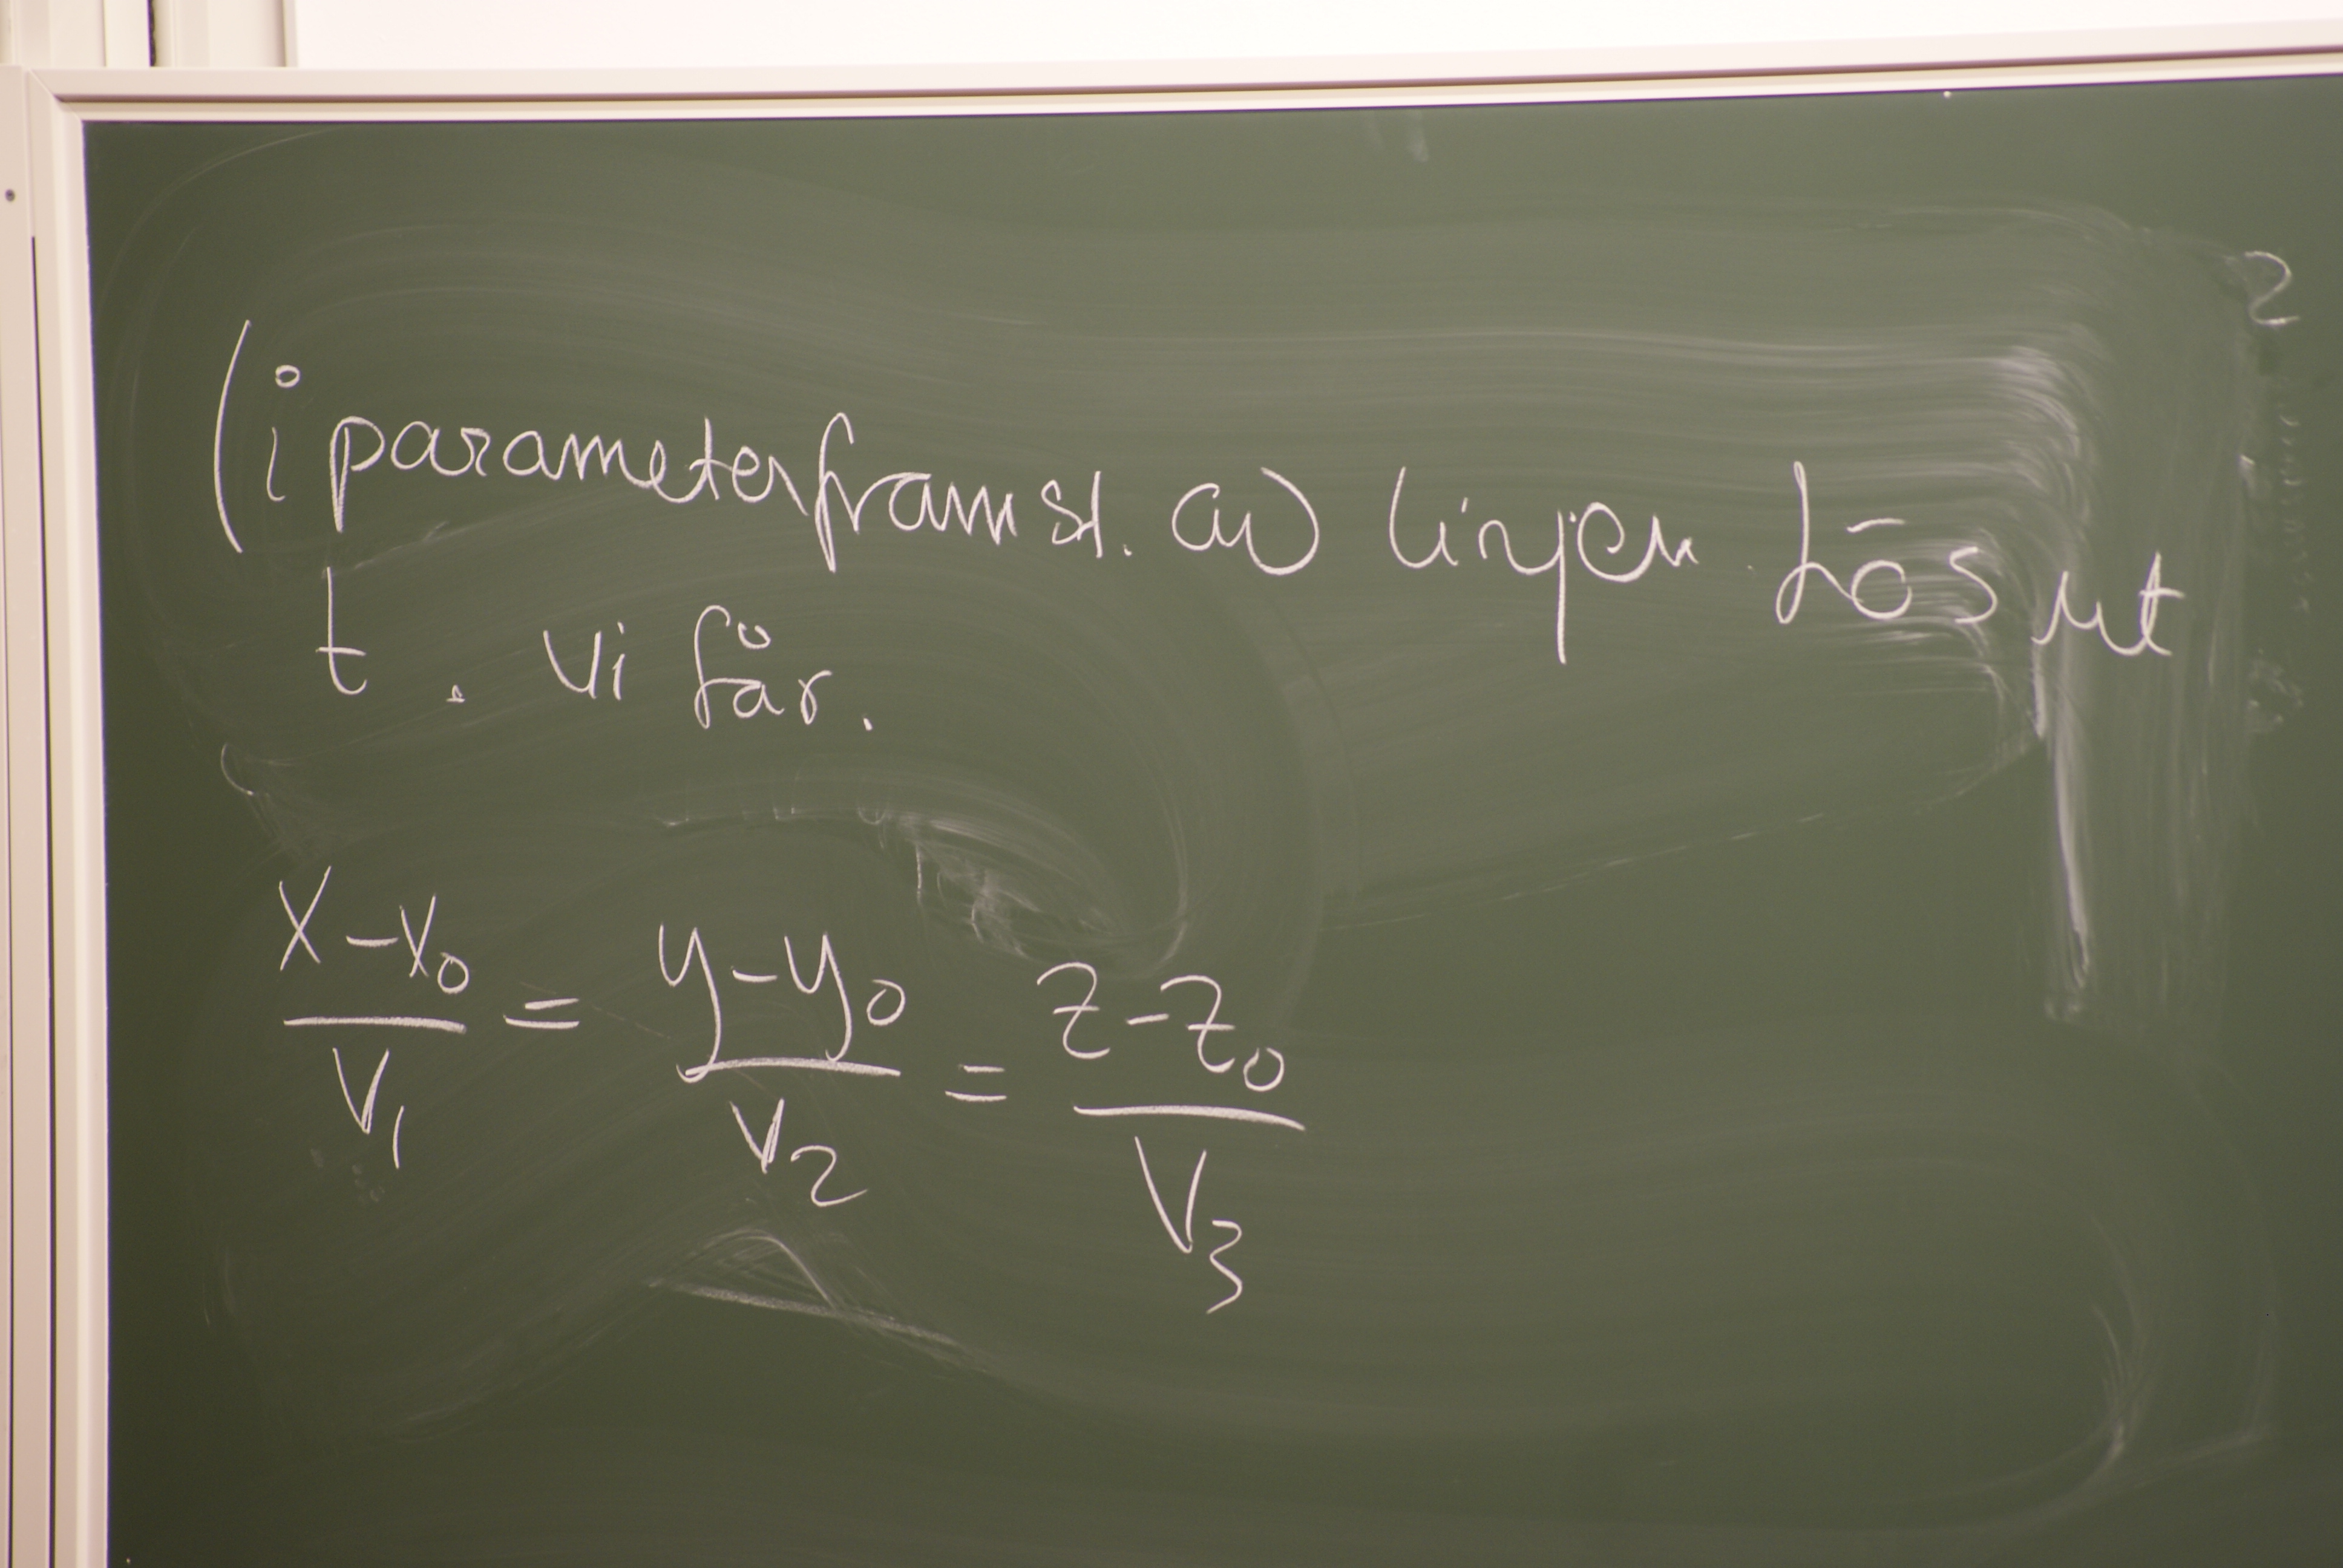 (i parameterframst. av linjen. Lös ut
t. Vi får.
x-x₀ / v₁ = y-y₀ / v₂ = z-z₀ / v₃